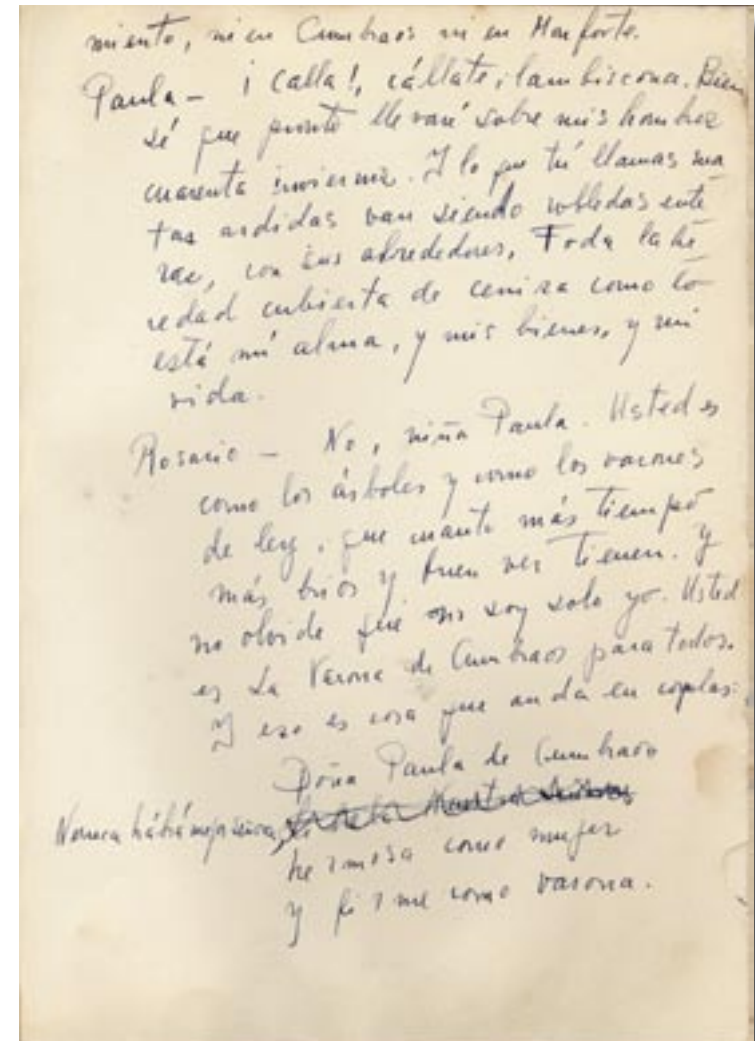 miento, ni en Cumbraos ni en Monforte.
Paula – ¡Calla!, cállate, lambiscona. Bien
sé que pronto llevaré sobre mis hombros
cuarenta inviernos. Y lo que tú llamas ma
tas ardidas van siendo robledas ente
ras, con sus alrededores, Toda la he
redad cubierta de ceniza como lo
está mi alma, y mis bienes, y mi
vida.
Rosario – No, niña Paula. Usted es
como los árboles y como los varones
de ley, que cuanto más tiempo
más bríos y buen ver tienen. Y
no olvide que no soy solo yo. Usted
es La Varona de Cumbraos para todos.
Y eso es cosa que anda en coplas:
Doña Paula de Cumbraos
Nunca habrá
hermosa como mujer
y firme como varona.